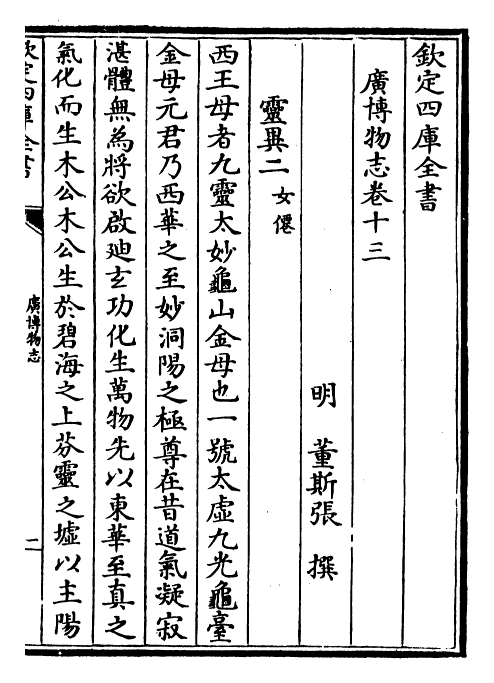 欽定四庫全書
廣博物志卷十三
明 董斯張 撰
靈異二 女僊
西王母者九靈太妙龜山金母也一號太虛九光龜臺
金母元君乃西華之至妙洞陽之極尊在昔道氣凝寂
湛體無為將欲啟廸玄功化生萬物先以東華至真之
氣化而生木公木公生於碧海之上芬靈之墟以主陽
欽定四庫全書
廣博物志